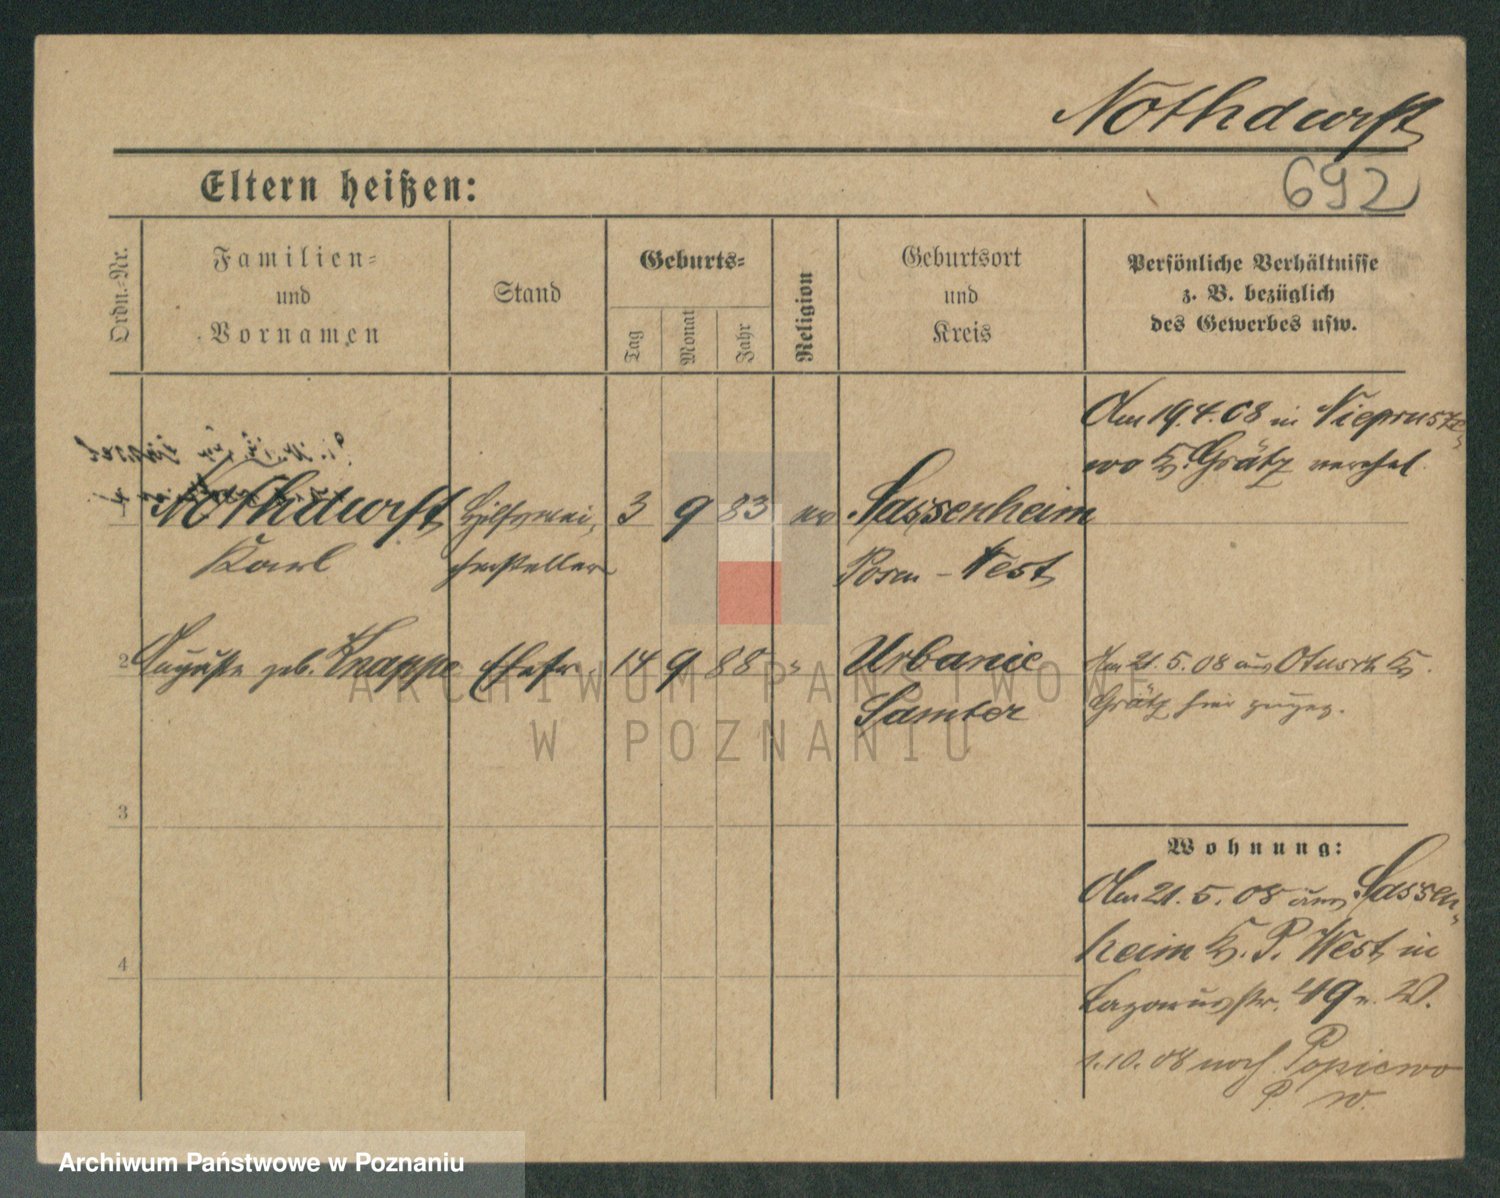 Nothdurft
692
Eltern heißen:
Ordn.-Nr.
Familien-
und
Vornamen
Stand
Geburts-
Tag
Monat
Jahr
Religion
Geburtsort
und
Kreis
Persönliche Verhältnisse
z. B. bezüglich
des Gewerbes usw.
Am 19.4.08 in Niepruszewo
wo Kr. Grätz verehel.
1 Nothdurft Hilfswei- 3 9 83 ev Sassenheim
Karl chensteller Posen-West
2 Auguste geb. Knappe Ehefr. 14 9 88 " Urbanie Am 21.5.08 aus Otusch Kr.
Samter Grätz hier zugez.
3
Wohnung:
Am 21.5.08 aus Sassen-
heim Kr. P. West in
4
Lazarusstr. 49 n. W.
1.10.08 nach Popiewo
P. W.
ARCHIWUM PAŃSTWOWE
W POZNANIU
Archiwum Państwowe w Poznaniu